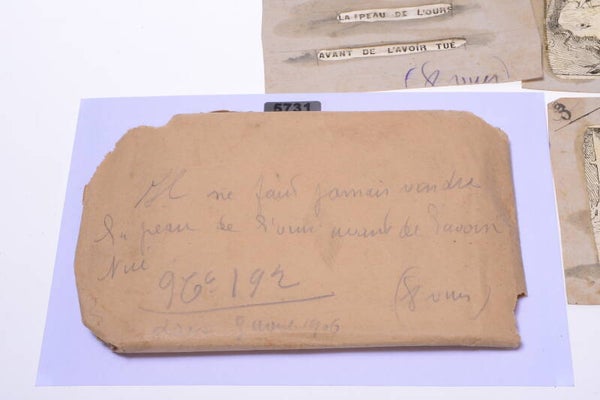 LA PEAU DE L'OURS
AVANT DE L'AVOIR TUÉ
(8 vues)
5731
Il ne faut jamais vendre
la peau de l'ours avant de l'avoir
tué
192
(8 vues)
1906